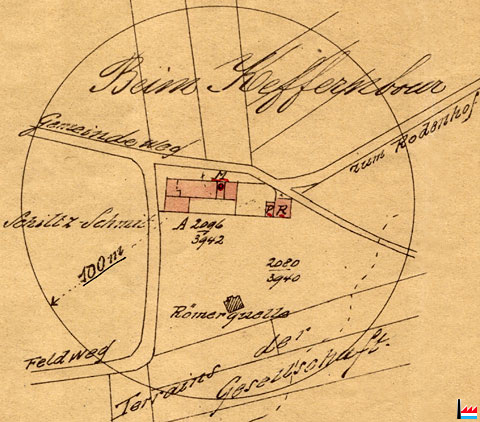 Beim Kefferpebour
Gemeindeweg
zum Rodenhof
M
P R
A 2096
3942
100 m
2080
3940
Römerquelle
Feldweg
Terrains der
Gesellschaft.